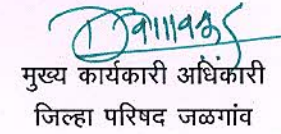 मुख्य कार्यकारी अधिकारी
जिल्हा परिषद जळगांव